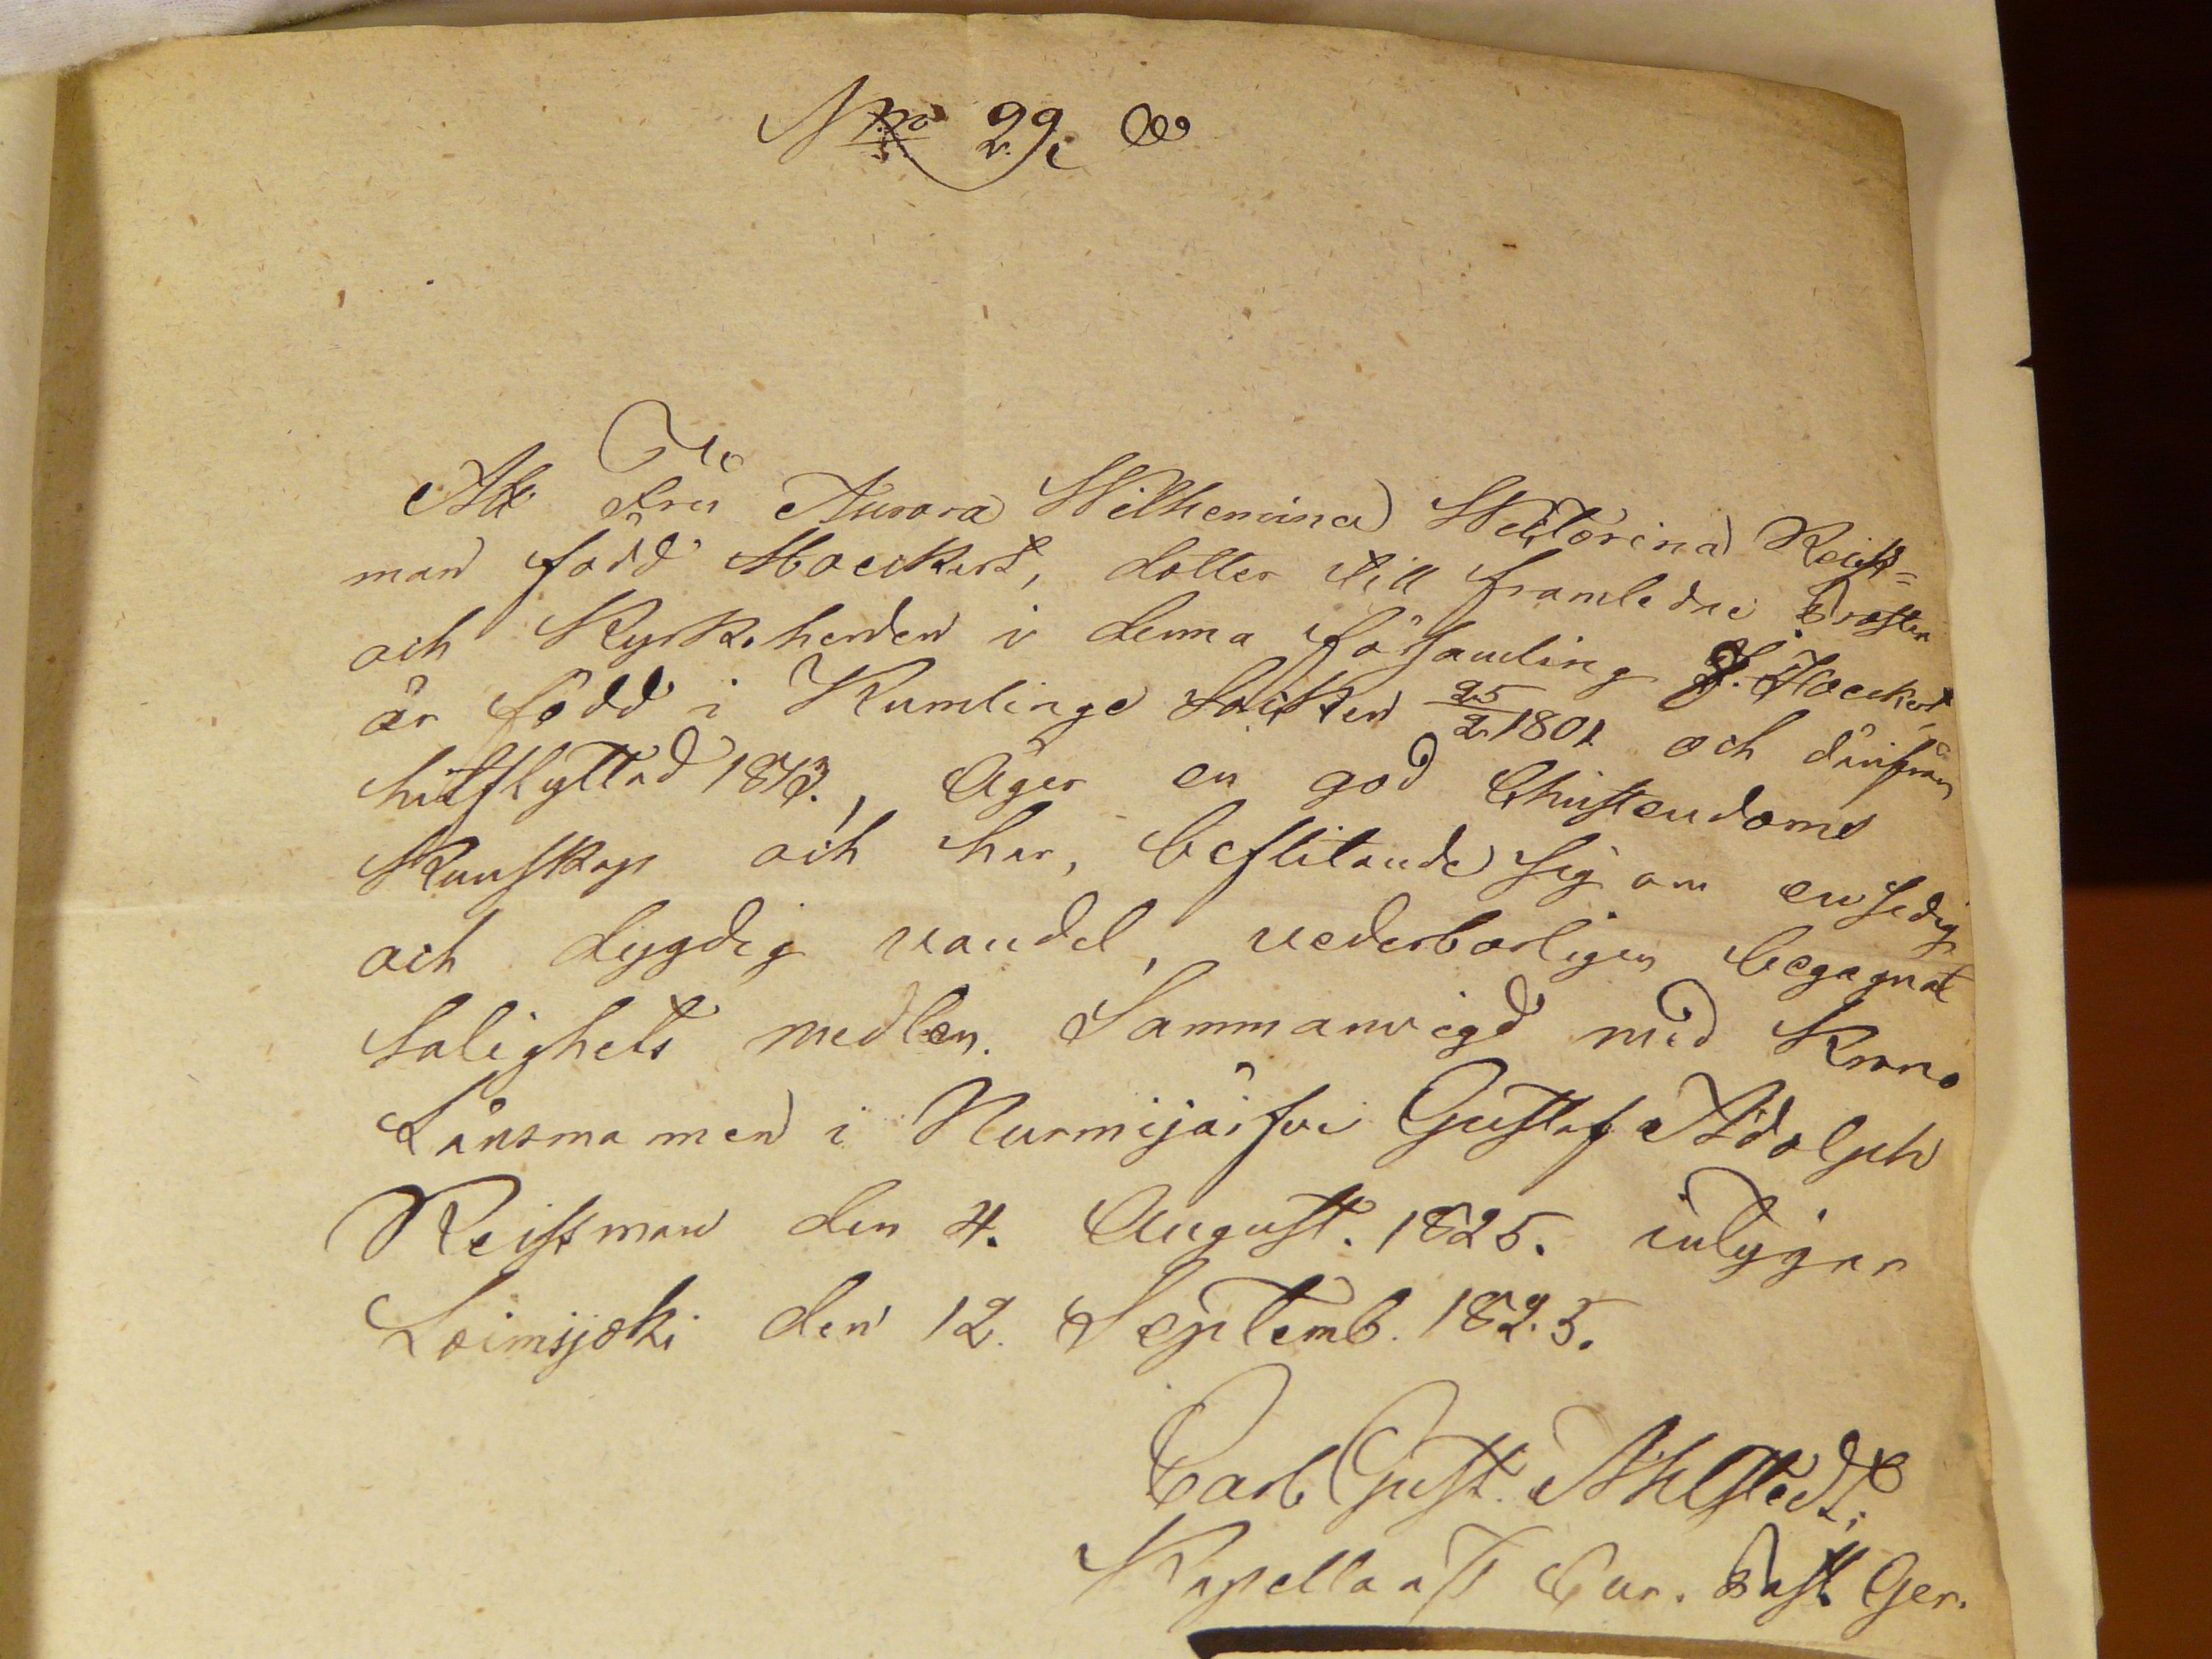 Nro 29.
Att Fru Aurora Wilhemina Wictorina Reist-
man född Hoeckert, dotter till framledne Prosten
och Kyrkoherden i denna församling J. Hoeckert,
är född i Kumlinge Socken 25/2 1801 och därifrån
hitflyttad 1813., Äger en god Christendoms
Kunskap och har, beflitande sig om en sedig
och dygdig vandel, vederbörligen begagnat
Salighets medlen. Sammanvigd med Krono
Länsmannen i Nurmijärfvi Gustaf Adolph
Reistman den 4. August. 1825. intygar
Loimijoki den 12. Septemb. 1825.
Carl Gust. Ahlstedt.
Kapellan Cur. Past. Ger.